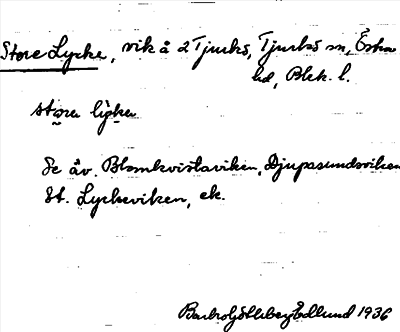 Store Lycke, vik å 2 Tjurkö, Tjurkö sn, Östra
hd, Blek. l.
stora lyka
Se äv. Blomkvistaviken, Djupasundsviken
St. Lyckeviken, ek.
Barbro Göthberg Edlund 1936